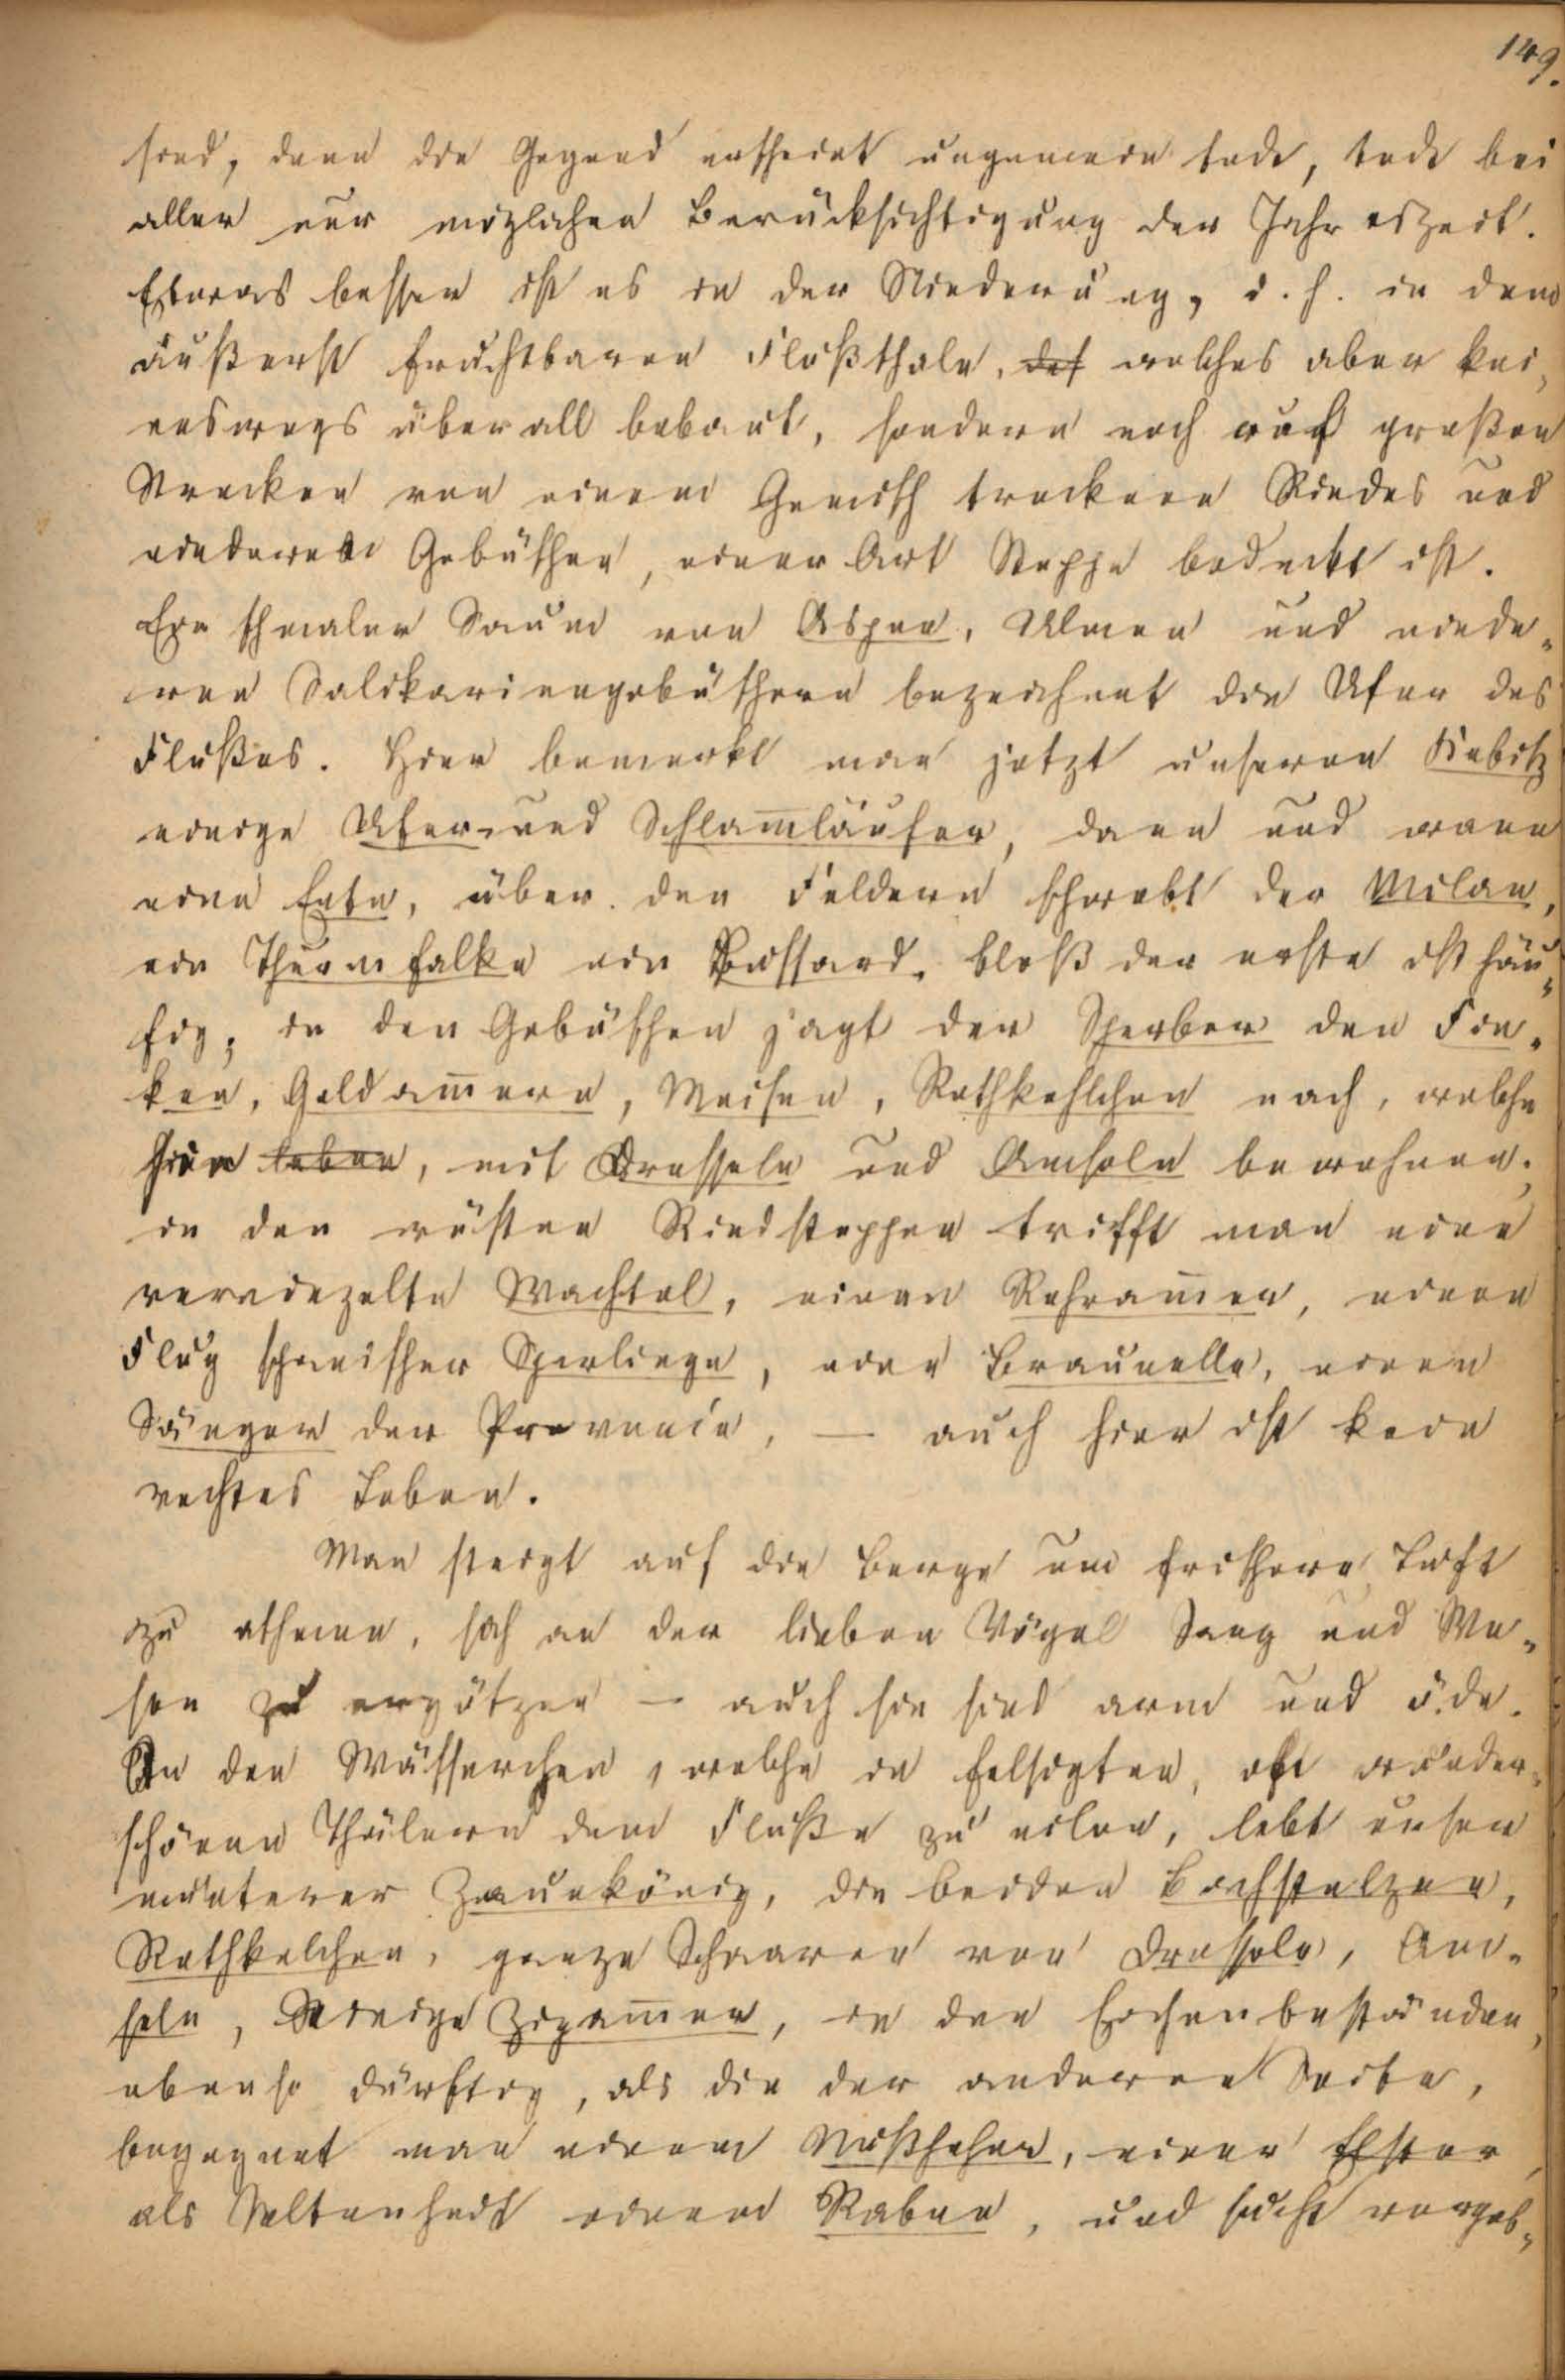 149.
sind, denn die Gegend erscheint ungemein todt, todt bei
aller nur möglichen Berücksichtigung der Jahreszeit.
Etwas besser ist es in der Niederung, d. h. in dem
äußerst fruchtbaren Flußthale, welches aber kei„
neswegs überall bebaut, sondern noch auf großen
Strecken von einem Gemisch trocknen Riedes und
niederen Gebüschen, einer Art Steppe bedeckt ist.
Ein schmaler Saum von Aspen, Ulmen und niede„
ren Salikariengebüschen bezeichnet die Ufer des
Flußes. Hier bemerkt man jetzt unseren Kiebitz
einige Ufer- und Schlam̄läufer, dann und wann
eine Ente, über den Feldern schwebt der Milan,
ein Thurmfalke ein Bussard, bloß der erste ist häu„
fig; in den Gebüschen jagt der Sperber den Fin„
ken, Goldam̄ern, Meisen, Rothkehlchen nach, welche
hier leben, mit Drosseln und Amseln bewohnen;
in den wüsten Riedsteppen trifft man eine
vereinzelte Wachtel, einen Rohram̄er, einen
Flug spanischer Sperlinge, eine Braunelle, einen
Sänger der Provence, — auch hier ist kein
rechtes Leben.
Man steigt auf die Berge um frischere Luft
zu athmen, sich an der lieben Vögel Sang und We„
sen zu ergötzen — auch sie sind arm und öde.
In den Wässerchen, welche in felsigten, oft wunder„
schönen Thälern dem Fluße zu eilen, lebt unser
munterer Zaunkönig, die beiden Bachstelzen,
Rothkelchen, ganze Schaaren von Drosseln, Am„
seln, einige Zipam̄er, in den Eichenbeständen,
ebenso dürftig, als die der anderen Seite,
begegnet man einem Nußheher, einer Elster,
als Seltenheit einem Raben, und sucht vergeb„